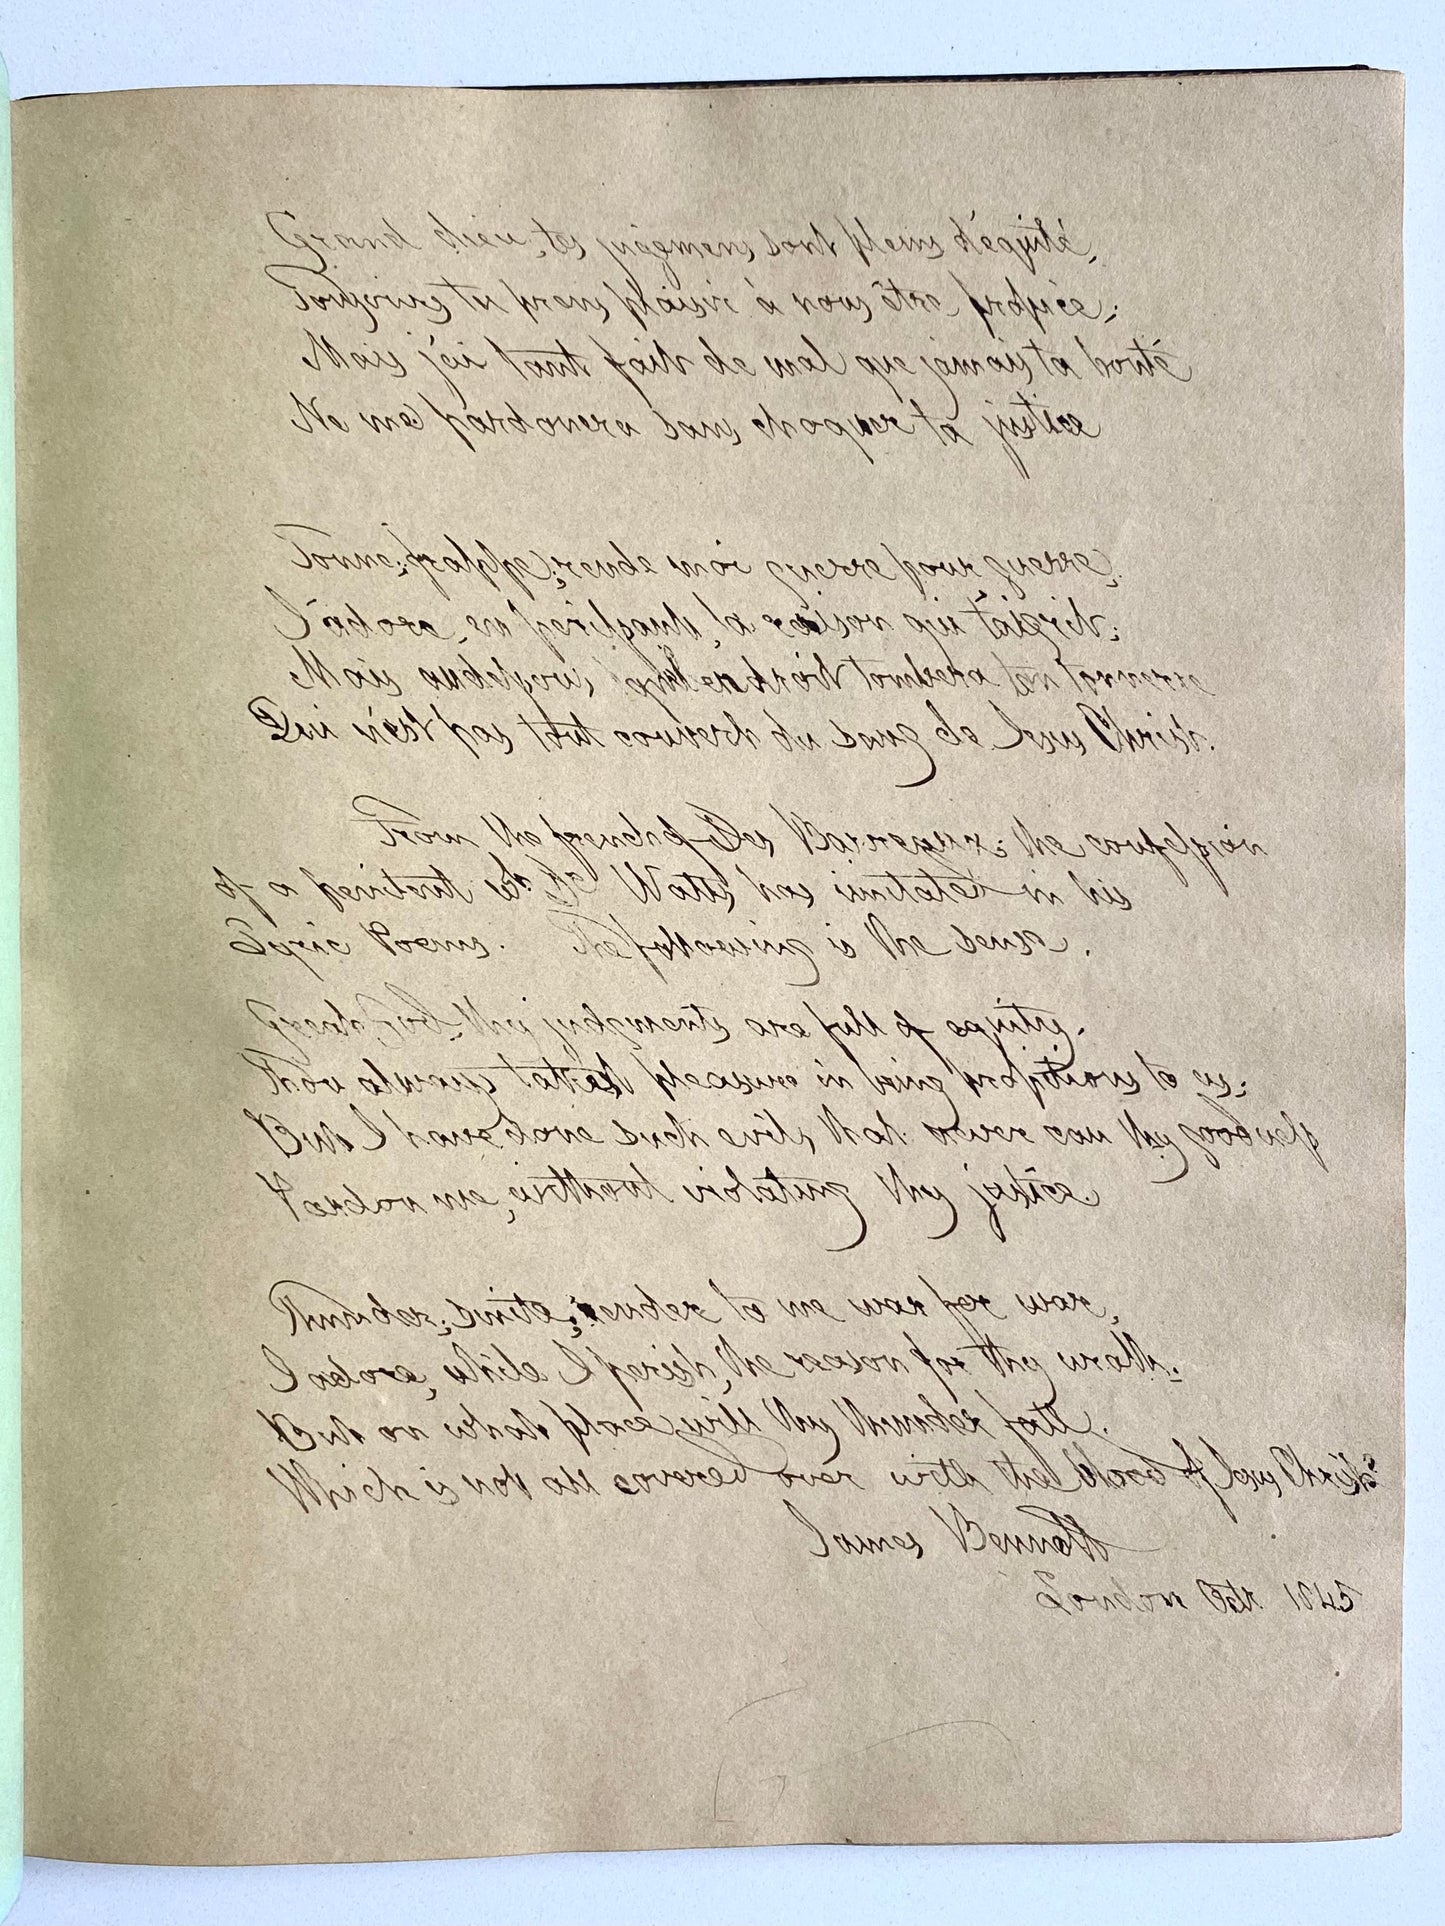 Grand dieu, tes jugemens sont pleins d'équité,
Toujours tu prens plaisir à nous être propice;
Mais j'ai tant fait de mal que jamais ta bonté
Ne me pardonera sans choquer ta justice
Tonne; frappe; rends moi guerre pour guerre,
J'adore, en perissant, la raison qui t'aigrit;
Mais audessus, quel endroit tombera ton tonnerre
Qui n'est pas tout couvert du sang de Jesus Christ.
From the french of Des Barreaux; the confession
of a penitent wch. Dr. Watts has imitated in his
Lyric Poems. The following is the sense.
Great God, thy judgments are full of equity.
Thou always takest pleasure in being propitious to us;
But I have done such evils, that never can thy goodness
Pardon me, without violating thy justice
Thunder; smite; render to me war for war,
I adore, while I perish, the reason for thy wrath.
But on what place will thy thunder fall.
Which is not all covered over with the blood of Jesus Christ?
James Bennett
London Octr 1843